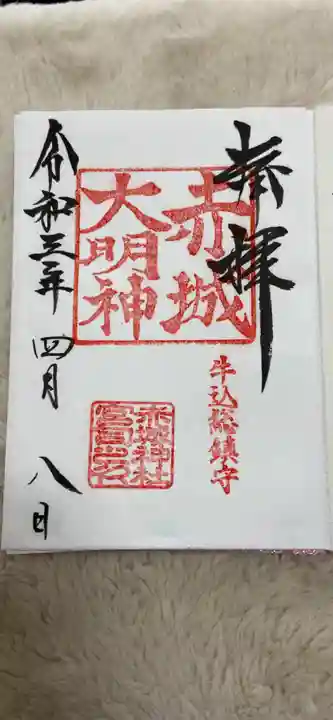 奉拝
赤城
大明神
牛込総鎮守
赤城神社
令和三年 四月 八日